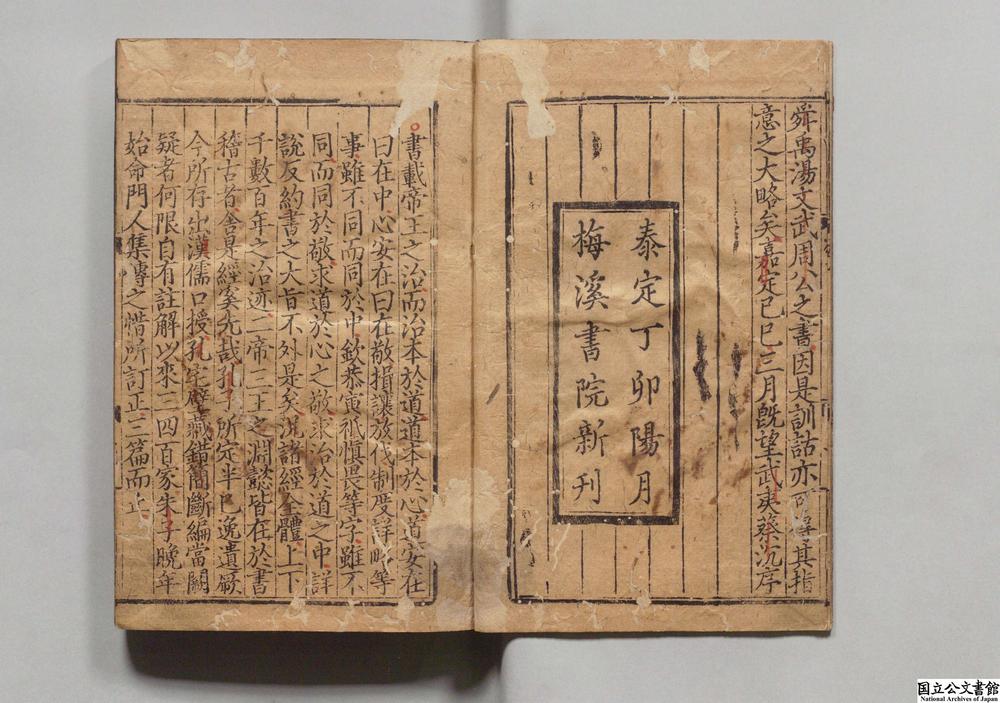 舜禹湯文武周公之書因是訓詁亦可得其指
意之大略矣嘉定己巳三月既望武夷蔡沉序
泰定丁卯陽月
梅溪書院新刊
書載帝王之治而治本於道道本於心道安在
曰在中心安在曰在敬揖讓放伐制度詳略等
事雖不同而同於中欽恭寅祗慎畏等字雖不
同而同於敬求道於心之敬求治於道之中詳
說反約書之大旨不外是矣況諸經全體上下
千數百年之治迹二帝三王之淵懿皆在於書
稽古者舍是經奚先哉孔子所定半已逸遺厥
今所存出漢儒口授孔宅壁藏錯簡斷編當闕
疑者何限自有註解以來三四百家朱子晚年
始命門人集傳之惜所訂正三篇而止
国立公文書館
National Archives of Japan